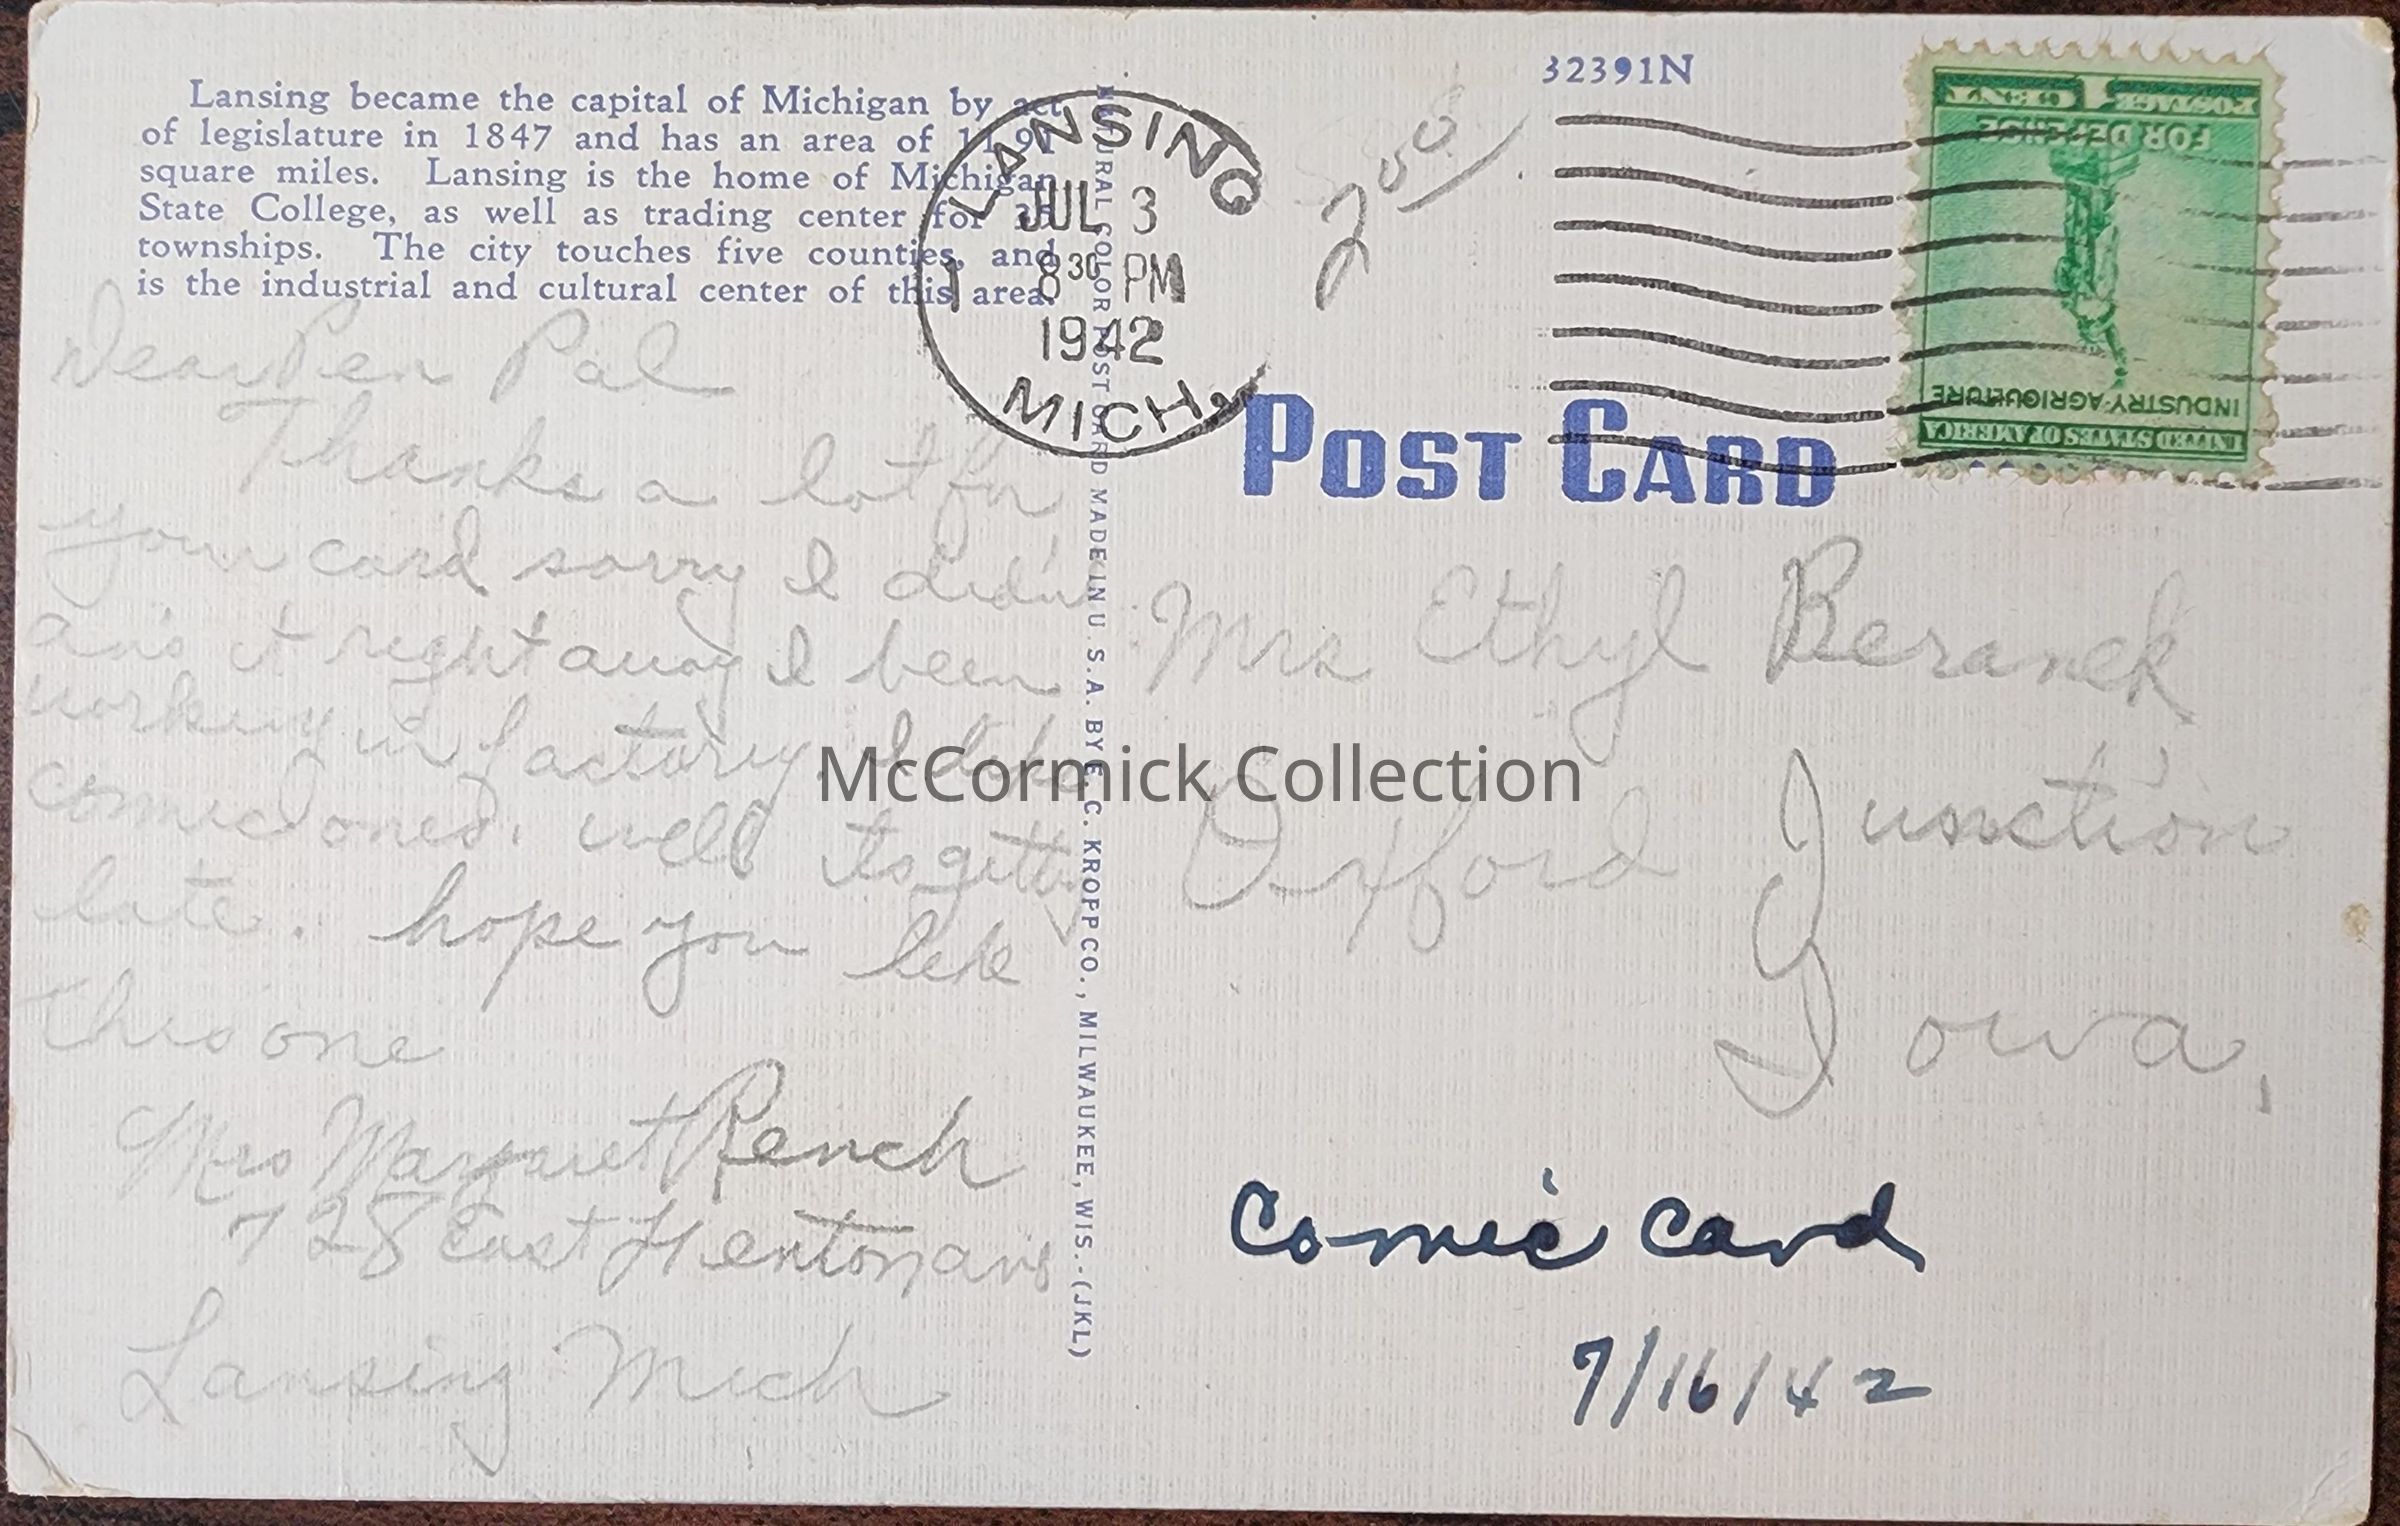 Lansing became the capital of Michigan by act
of legislature in 1847 and has an area of 11.91
square miles. Lansing is the home of Michigan
State College, as well as trading center for 35
townships. The city touches five counties, and
is the industrial and cultural center of this area.
32391N
LANSING
JUL 3
8 30 PM
1942
MICH.
1
2 00
1 CENT 1 POSTAGE
FOR DEFENSE
INDUSTRY AGRICULTURE
UNITED STATES OF AMERICA
POST CARD
NATURAL COLOR POST CARD MADE IN U.S.A. BY E. C. KROPP CO., MILWAUKEE, WIS.-(JKL)
Dear Pen Pal
Thanks a lot for
your card sorry I didn't
ans it right away I been
working in factory. I like
comic ones. well its getting
late. hope you like
this one
Mrs Margaret Pench
728 East
Lansing Mich
Mrs Ethyl Beranek
Oxford Junction
Iowa,
Comic Card
7/16/42
McCormick Collection